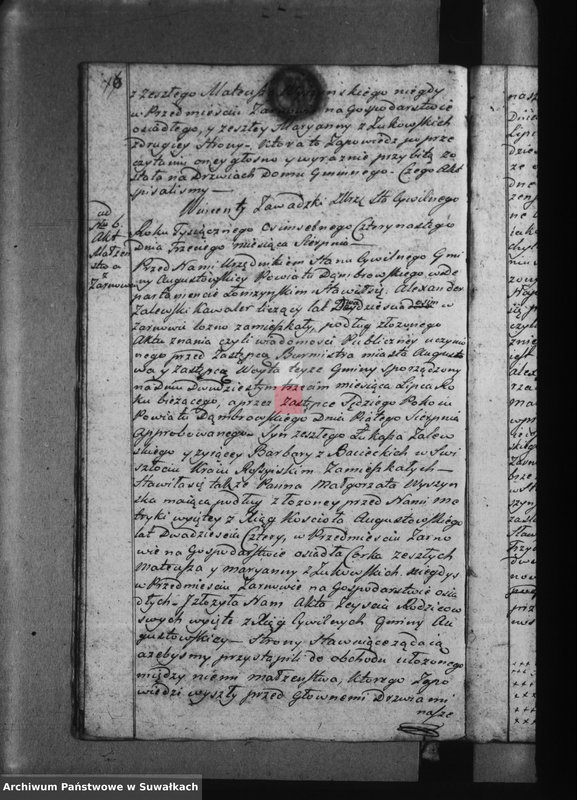 z zeszłego Mateusza Wyszynskiego niegdy
w Przedmiesciu Zarnowie na Gospodarstwie
osiadłego, y zeszłey Maryanny z Zukowskich
z drugiey Strony – Ktora to Zapowiedz po prze
czytaniu oney głosno y wyraznie przybita zo
stała na Drzwiach Domu Gminnego – Czego Akt
spisalismy —
Wincenty Zawadzki Urz: Sta: Cywilnego
ad
Nro 6.
Akt
Małżen
stwa
z
Zarnowa
Roku Tysiącznego Osmsetnego Czternastego
Dnia Trzeciego miesiąca Sierpnia —
Przed Nami Urzędnikiem Stanu Cywilnego Gmi
ny Augustowskiey Powiatu Dąmbrowskiego w De
partamencie Łomzynskim Stawił się, Alexander
Zalewski Kawaler liczący lat Dwadziescia w
Zarnowie zamieszkały, podług złozonego
Aktu znania czyli wiadomosci Publiczney uczynio
nego przed Zastępcą Burmistra miasta Augusto
wa y Zastępcą Woyta teyze Gminy Sporządzony
na Dniu Dwudziestym trzecim miesiąca Lipca Ro
ku biezącego, a przez Zastępce Sędziego Pokoiu
Powiatu Dąmbrowskiego Dnia Piątego Sierpnia
approbowanego – Syn zeszłego Łukasza Zalew
skiego y zyiącey Barbary z Bacieckich w Swi
słoczu Kraiu Rossyiskim Zamieszkałych —
Stawiła się także Panna Małgorzata Wyszyn
ska maiąca podług złozoney przed Nami me
tryki wyiętey z Xiąg Koscioła Augustowskiego
lat Dwadziescia Cztery, w Przedmiesciu Zarno
wie na Gospodarstwie osiadła Corka zeszłych
Mateusza y Maryanny z Zukowskich. niegdys
w Przedmiesciu Zarnowie na Gospodarstwie osia
dłych – Złozyła Nam Akta Zeyscia Rodzicow
swych wyięte z Xiąg Cywilnych Gminy Au
gustowskiey – Strony Stawaiące ządaią
azebysmy przystąpili do obchodu ułozonego
między niemi małzenstwa, ktorego Zapo
wiedzi wyszły przed głownemi Drzwiami
nasze
Archiwum Państwowe w Suwałkach